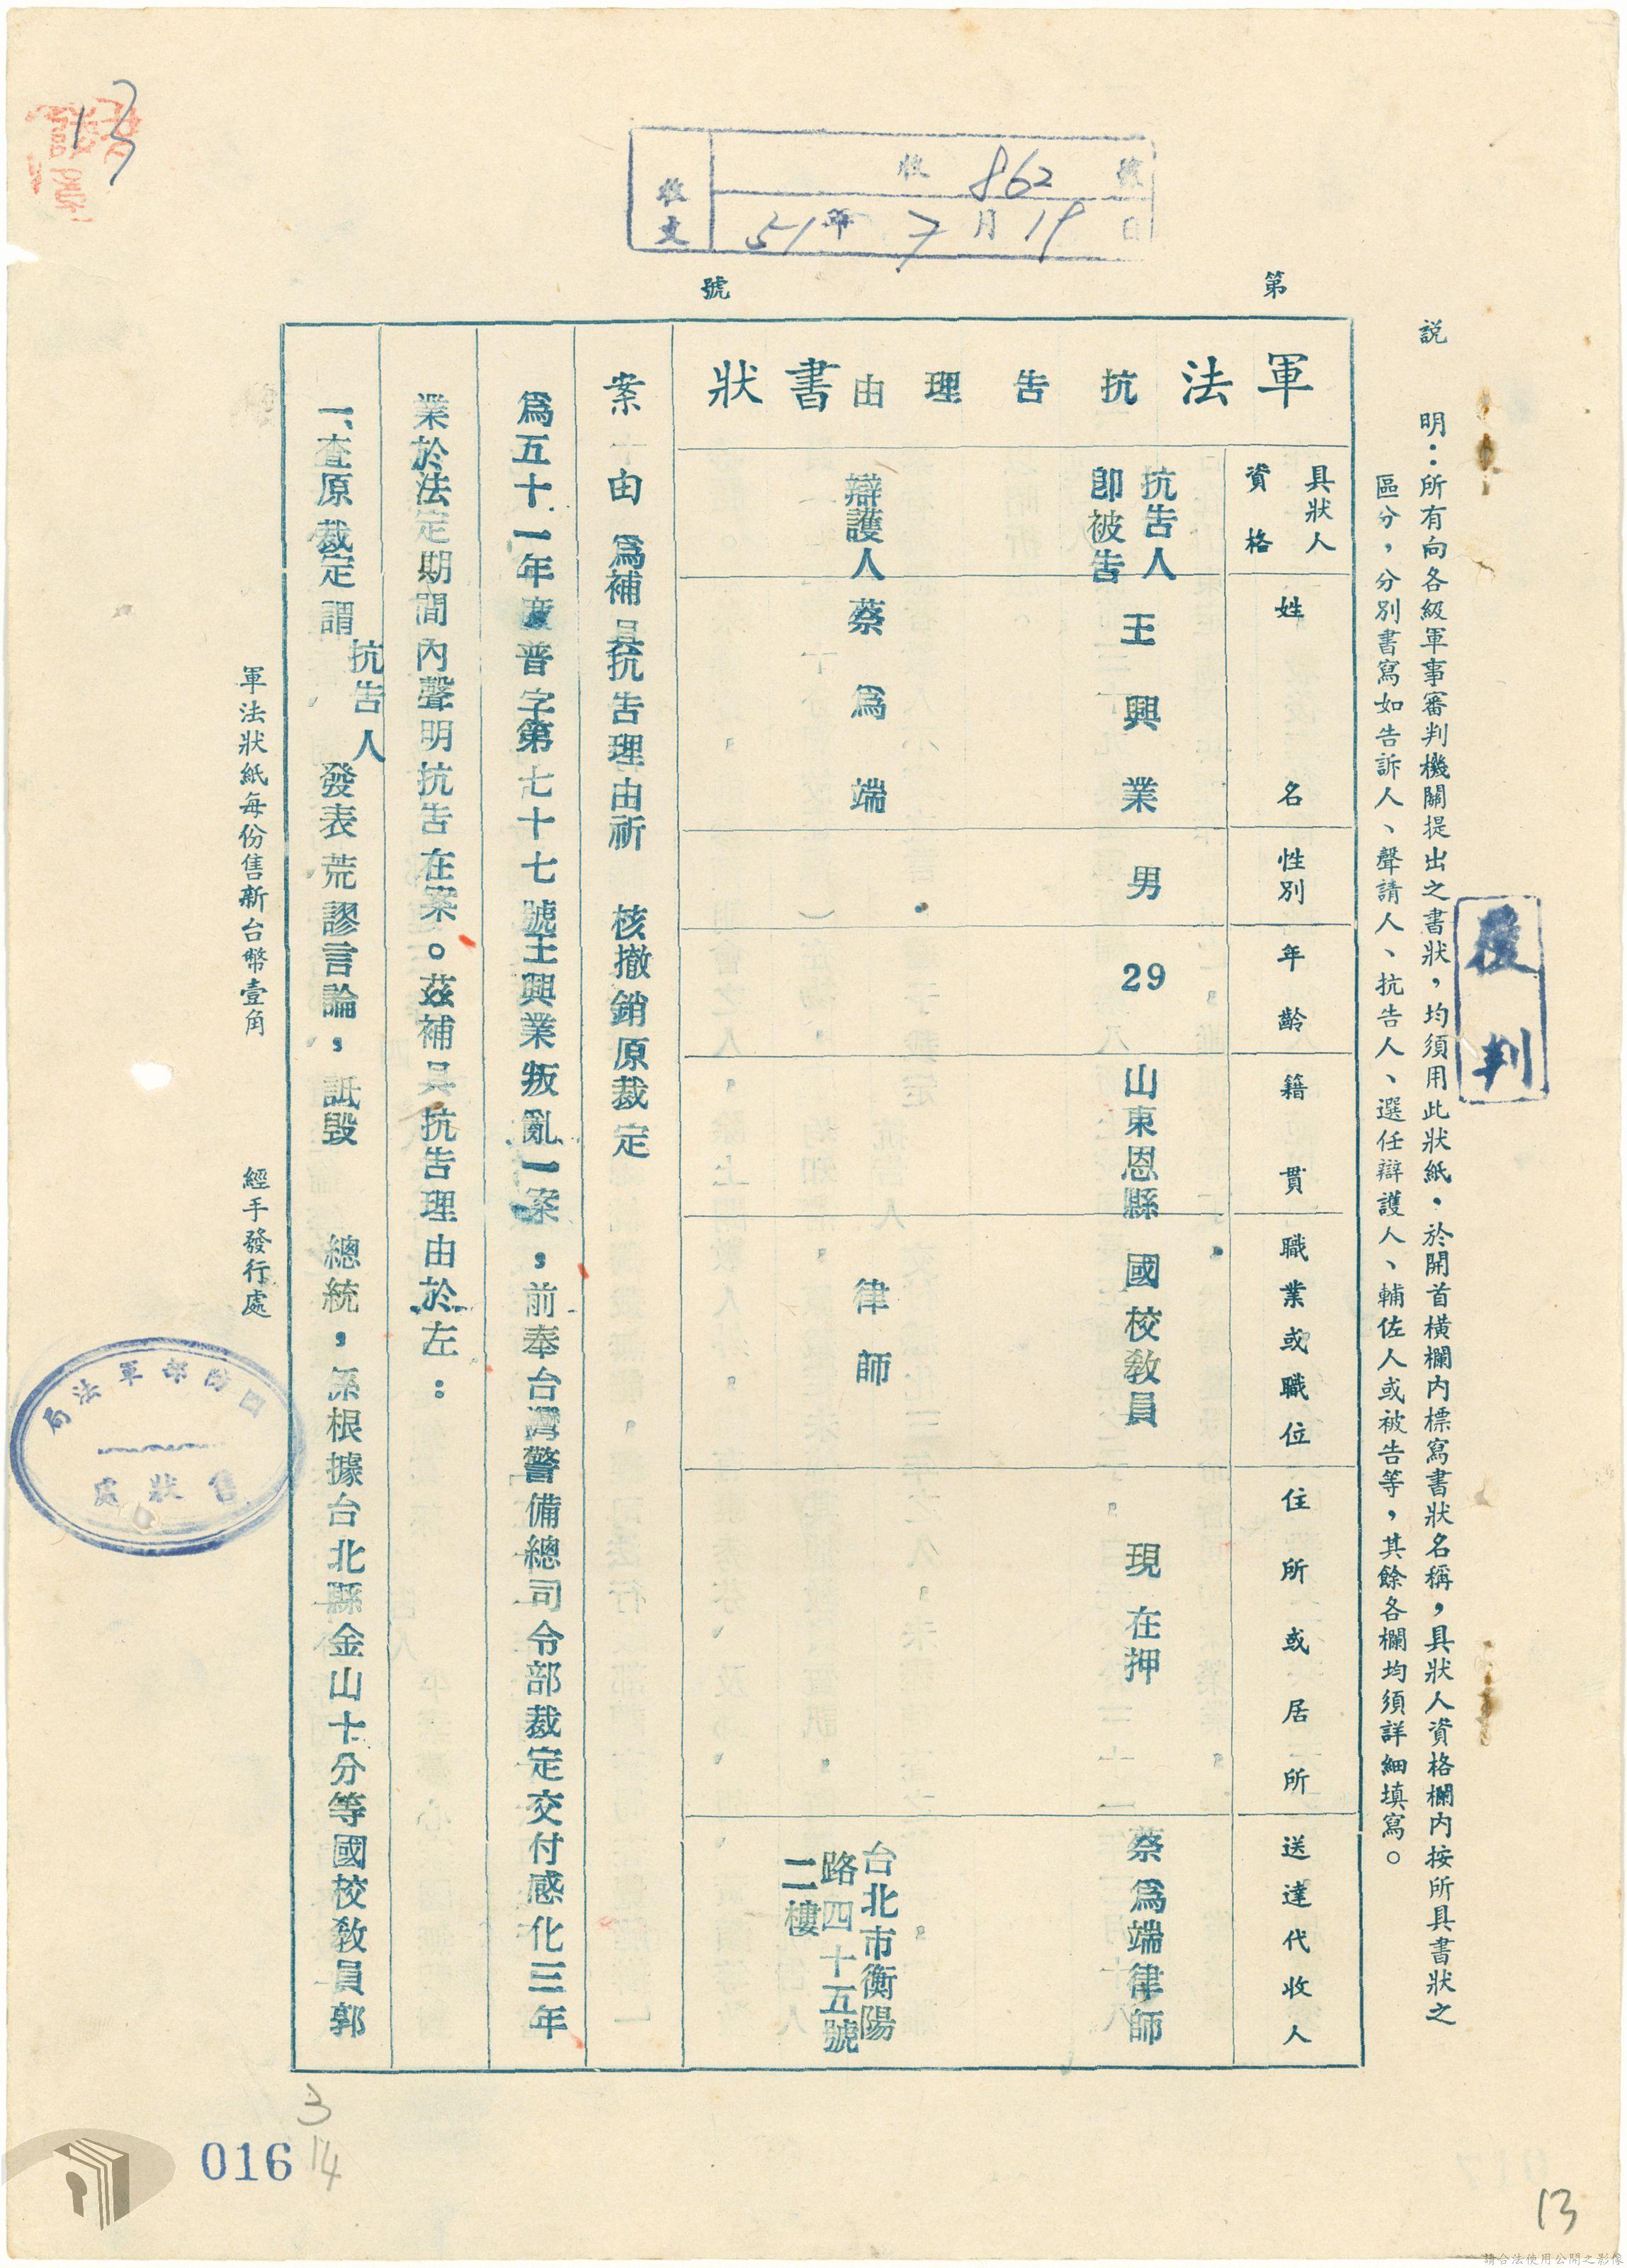 收文
收 862 號
51年 7月 19日
第 號
說 明：所有向各級軍事審判機關提出之書狀，均須用此狀紙。於開首橫欄內標寫書狀名稱，具狀人資格欄內按所具書狀之
區分，分別書寫如告訴人、聲請人、抗告人、選任辯護人、輔佐人或被告等，其餘各欄均須詳細填寫。
覆判
軍法抗告理由書狀
具狀人資格
姓名
性別
年齡
籍貫
職業或職位
住所或居所
送達代收人
抗告人
即被告
王興業
男
29
山東恩縣
國校敎員
現在押
蔡爲端律師
辯護人
蔡爲端
律師
台北市衡陽
路四十五號
二樓
案由 爲補具抗告理由祈 核撤銷原裁定
爲五十一年度普字第七十七號王興業叛亂一案，前奉台灣警備總司令部裁定交付感化三年
業於法定期間內聲明抗告在案。茲補具抗告理由於左：
一、查原裁定謂抗告人發表荒謬言論，詆毀 總統，係根據台北縣金山十分等國校敎員郭
軍法狀紙每份售新台幣壹角 經手發行處
國防部軍法局
售狀處
13
016
3
14
13
請合法使用公開之影像